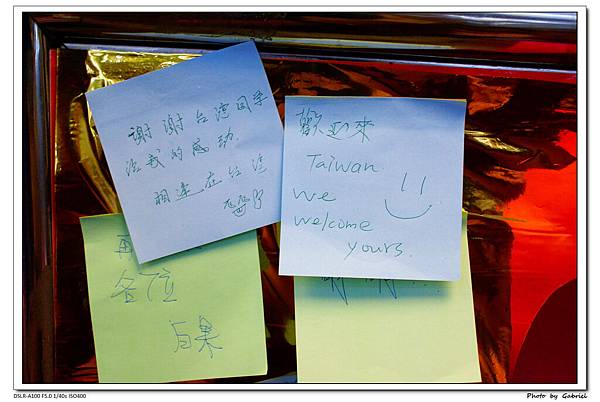 谢谢台湾同学
给我的感动.
相逢在台湾
歡迎來
Taiwan
We
welcome
yours.
再
各位
白果
谢谢!!!
DSLR-A100 F5.0 1/40s ISO400
Photo by Gabriel